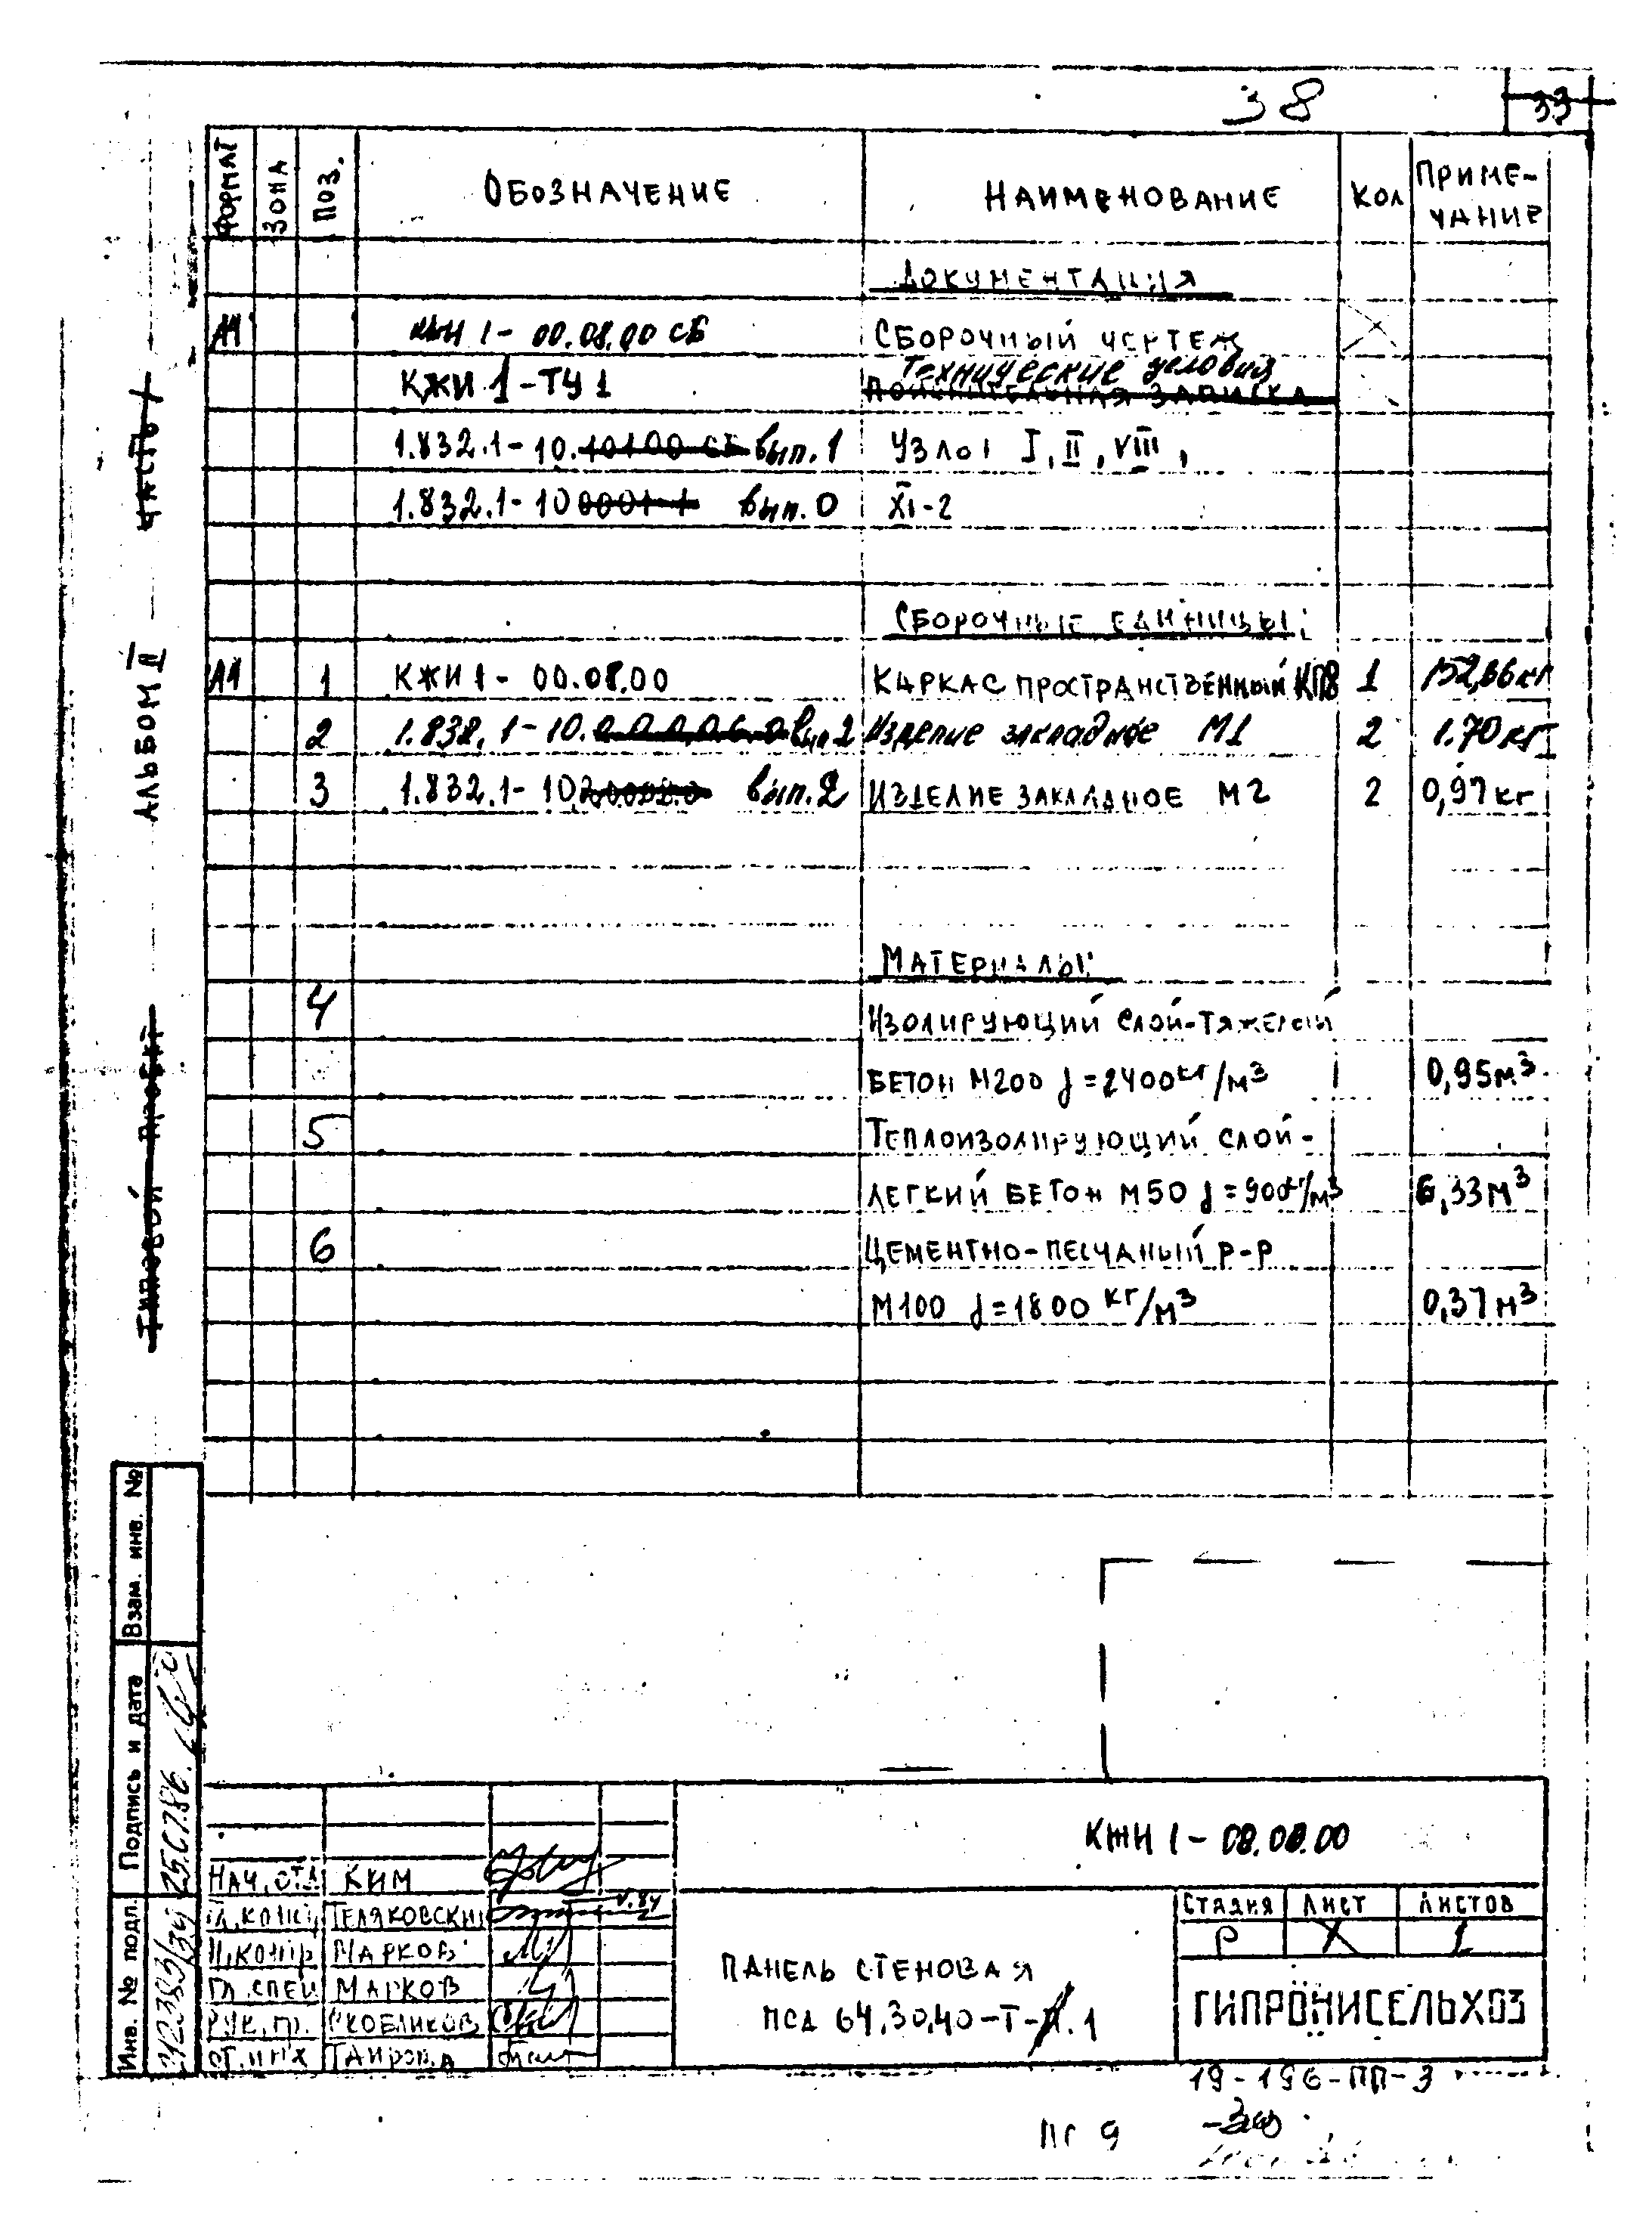 38
33
ФОРМАТ ЗОНА ПОЗ. ОБОЗНАЧЕНИЕ НАИМЕНОВАНИЕ КОЛ ПРИМЕ-
ЧАНИЕ
ДОКУМЕНТАЦИЯ
А4 КЖИ 1- 00.08.00 СБ СБОРОЧНЫЙ ЧЕРТЕЖ
Технические условия
КЖИ 1-ТУ1 ПОЯСНИТЕЛЬНАЯ ЗАПИСКА
1.832.1-10.10100 СБ вып.1 УЗЛЫ I, II, VIII,
1.832.1-10 0001-1 вып.0 XI-2
СБОРОЧНЫЕ ЕДИНИЦЫ:
А4 1 КЖИ 1- 00.08.00 КАРКАС ПРОСТРАНСТВЕННЫЙ КП8 1 152,66кг
2 1.832.1-10. вып 2 Изделие закладное М1 2 1.70кг
3 1.832.1-10. вып.2 ИЗДЕЛИЕ ЗАКЛАДНОЕ М2 2 0,97кг
МАТЕРИАЛЫ:
4 ИЗОЛИРУЮЩИЙ СЛОЙ-ТЯЖЕЛЫЙ
БЕТОН М200 γ=2400кг/м3 0,95м3
5 ТЕПЛОИЗОЛИРУЮЩИЙ СЛОЙ-
ЛЕГКИЙ БЕТОН М50 γ=900кг/м3 6,33м3
6 ЦЕМЕНТНО-ПЕСЧАНЫЙ Р-Р
М100 γ=1800 кг/м3 0,37м3
ТИПОВОЙ ПРОЕКТ АЛЬБОМ II ЧАСТЬ 1
Инв. № подл. Подпись и дата Взам. инв. №
25.07.86
КЖИ 1-08.00.00
НАЧ.ОТД КИМ
ГЛ.КОНСТ ТЕЛЯКОВСКИЙ V.84
Н.КОНТР МАРКОВ
ГЛ.СПЕЦ МАРКОВ
РУК.ГР. СКОБЛИКОВ
СТ.ИНЖ ТАИРОВА
ПАНЕЛЬ СТЕНОВАЯ
ПСД 64.30.40-Т-П.1
СТАДИЯ ЛИСТ ЛИСТОВ
Р 1
ГИПРОНИСЕЛЬХОЗ
19-196-ПП-3
ПГ 9